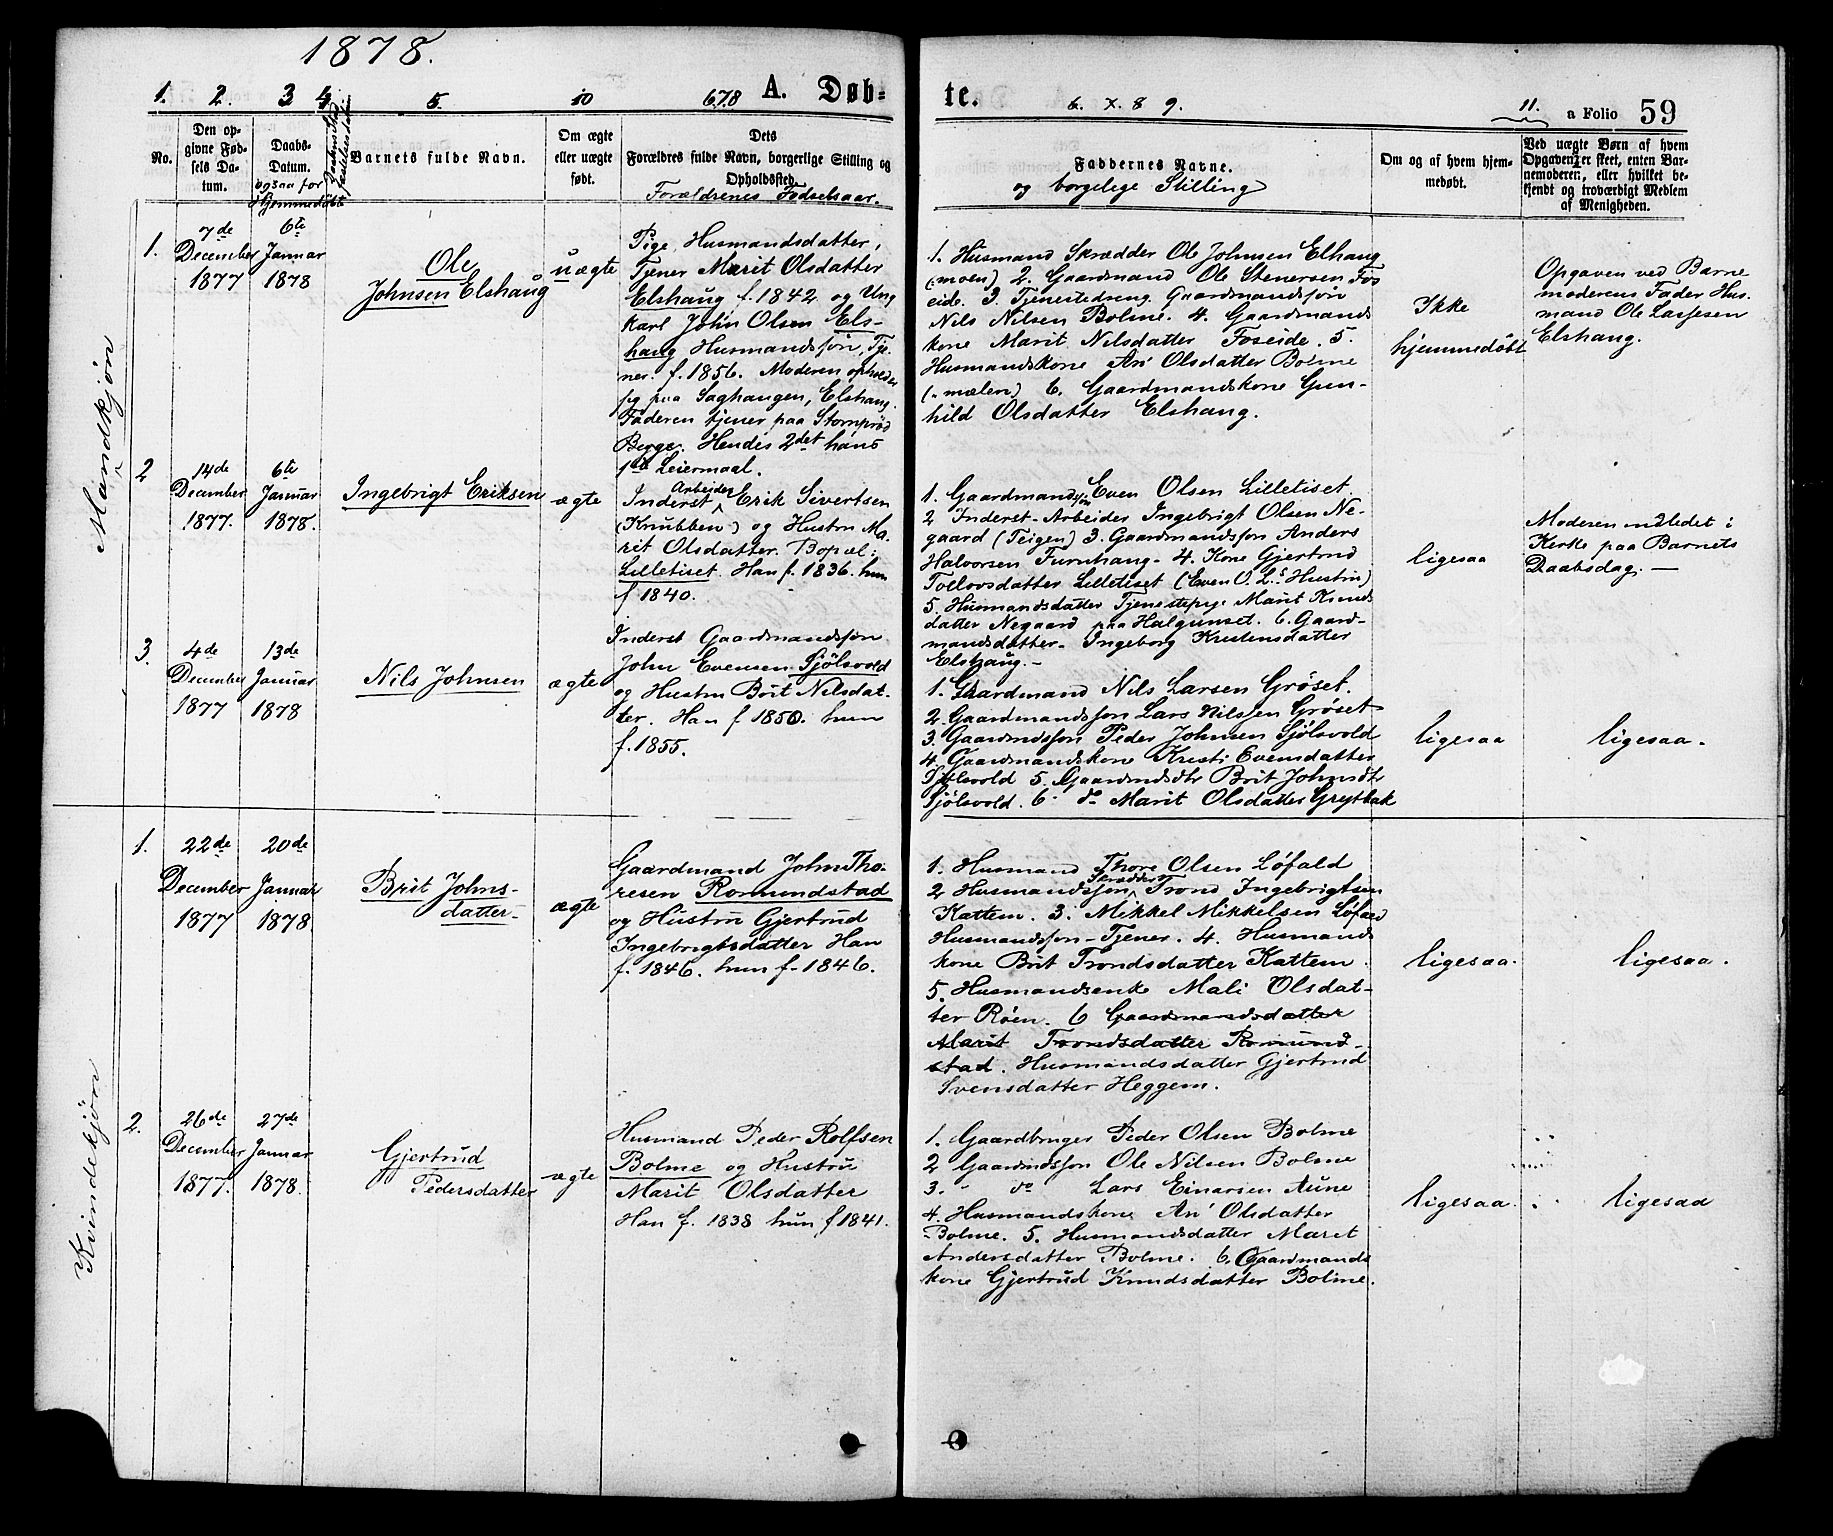 1878.
1. 2. 3 4 5. 10 678 A. Døb-
No.
Den op-
givne Fød-
sels Da-
tum.
Daabs-
Datum.
ogsaa for
Hjemmedøbte
Barnets fulde Navn.
Om ægte
eller uægte
født.
Dets
Forældres fulde Navn, borgerlige Stilling og
Opholdssted.
Forældrenes Fødselsaar.
Mandkjøn
1.
7de
December
1877
6te
Januar
1878
Ole
Johnsen Elshaug
uægte
Pige, Husmandsdatter,
Tjener Marit Olsdatter
Elshaug f. 1842 og Ung
karl John Olsen Els-
haug Husmandssøn, Tje
ner. f. 1856. Moderen opholder
sig paa Saghaugen, Elshaug.
Faderen tjener paa
Hendes 2det hans
1ste Leiermaal.
2
14de
December
1877.
6te
Januar
1878.
Ingebrigt Eriksen
ægte
Arbeider
Inderst Erik Sivertsen
(Knubben) og Hustru Ma
rit Olsdatter. Bopæl:
Lilletiset. Han f. 1836. hun
f 1840.
3.
4de
December
1877
13de
Januar
1878
Nils Johnsen
ægte
Inderst Gaardmandssøn
John Evensen Sjölsvold
og Hustru Brit Nilsdat-
ter. Han f 1850. hun
f. 1855.
Kvindekjøn
1.
22de
December
1877
20de
Januar
1878
Brit Johns-
datter
ægte
Gaardmand John Tho
resen Romundstad
og Hustru Gjertrud
Ingebrigtsdatter Han
f. 1846. hun f. 1846.
2.
26de
December
1877.
27de
Januar
1878.
Gjertrud
Pedersdatter
ægte
Husmand Peder Rolfsen
Bolme og Hustru
Marit Olsdatter
Han f. 1838 hun f 1841.
te. 6. 7. 8 9. 11. a Folio 59
Faddernes Navne.
og borgelige Stilling
Om og af hvem hjem-
medøbt.
Ved uægte Børn af hvem
Opgaven er skeet, enten Bar-
nemoderen, eller hvilket be-
kjendt og troværdigt Medlem
af Menigheden.
1. Husmand Skrædder Ole Johnsen Elhaug
(moen) 2. Gaardmand Ole Stenersen Fos
eide. 3. Tjenestedreng Gaardmandssøn
Nils Nilsen Bolme. 4. Gaardmands
kone Marit Nilsdatter Foseide. 5.
Husmandskone An Olsdatter Bolme
(-mælen) 6. Gaardmandskone Gun-
hild Olsdatter Elshaug.
Ikke
hjemmedøbt
Opgaven ved Barne
moderens Fader Hus-
mand Ole Larssen
Elshaug.
1. Gaardmandssøn Even Olsen Lilletiset
2 Inderst-Arbeider Ingebrigt Olsen Ne-
gaard (Teigen) 3. Gaardmandssøn Anders
Halvorsen Furuhaug- 4. Kone Gjertrud
Tollovsdatter Lilletiset (Even O. L.s Hustru)
5. Husmandsdatter Tjenestepige Marit Knuds
datter Negaard paa Halgunset. 6. Gaard-
mandsdatter. Ingeborg Kristensdatter
Elshaug.-
ligesaa
Moderen indledet i
Kirke paa Barnets
Daabsdag. —
1. Gaardmand Nils Larsen Gröset.
2. Gaardmandssøn Lars Nilssen Gröset
3. Gaardmdssøn Peder Johnsen Sjölsvold
4. Gaardmandskone Kristi Evensdatter
Sjölsvold 5. Gaardmdsdtr Brit Johnsdtr
Sjölsvold. 6. do Marit Olsdatter
ligesaa
ligesaa.
1. Husmand Thore Olsen Löfald
Skrædder
2 Husmandssøn, Trond Ingebrigtsen
Kattem. 3. Mikkel Mikkelsen Löfald
Husmandssøn-Tjener. 4. Husmands
kone Brit Trondsdatter Kattem.
5. Husmandsenke Mali Olsdat-
ter Röen. 6 Gaardmandsdatter
Marit Trondsdatter Romund-
stad. Husmandsdatter Gjertrud
Svensdatter Heggem.
ligesaa.
ligesaa.
1. Gaardbruger Peder Olsen Bolme
2 Gaardmdssøn Ole Nilsen Bolme
3. - do Lars Einarsen Aune
4. Husmandskone An Olsdatter
Bolme. 5. Husmandsdatter Marit
Andersdatter Bolme. 6. Gaardmands
kone Gjertrud Knudsdatter Bolme.
ligesaa.
ligesaa